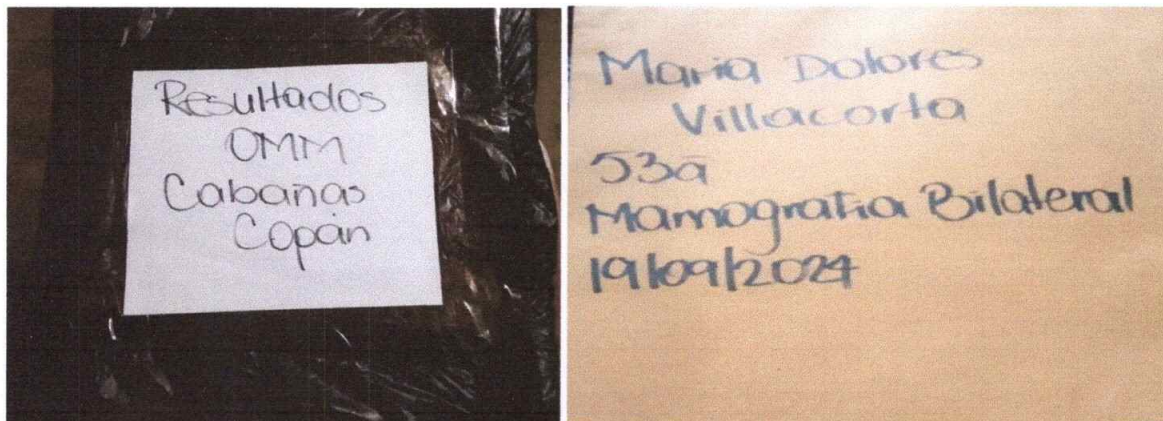 Resultados
OMM
Cabañas
Copán
Maria Dolores
Villacorta
53a
Mamografia Bilateral
19/09/2024